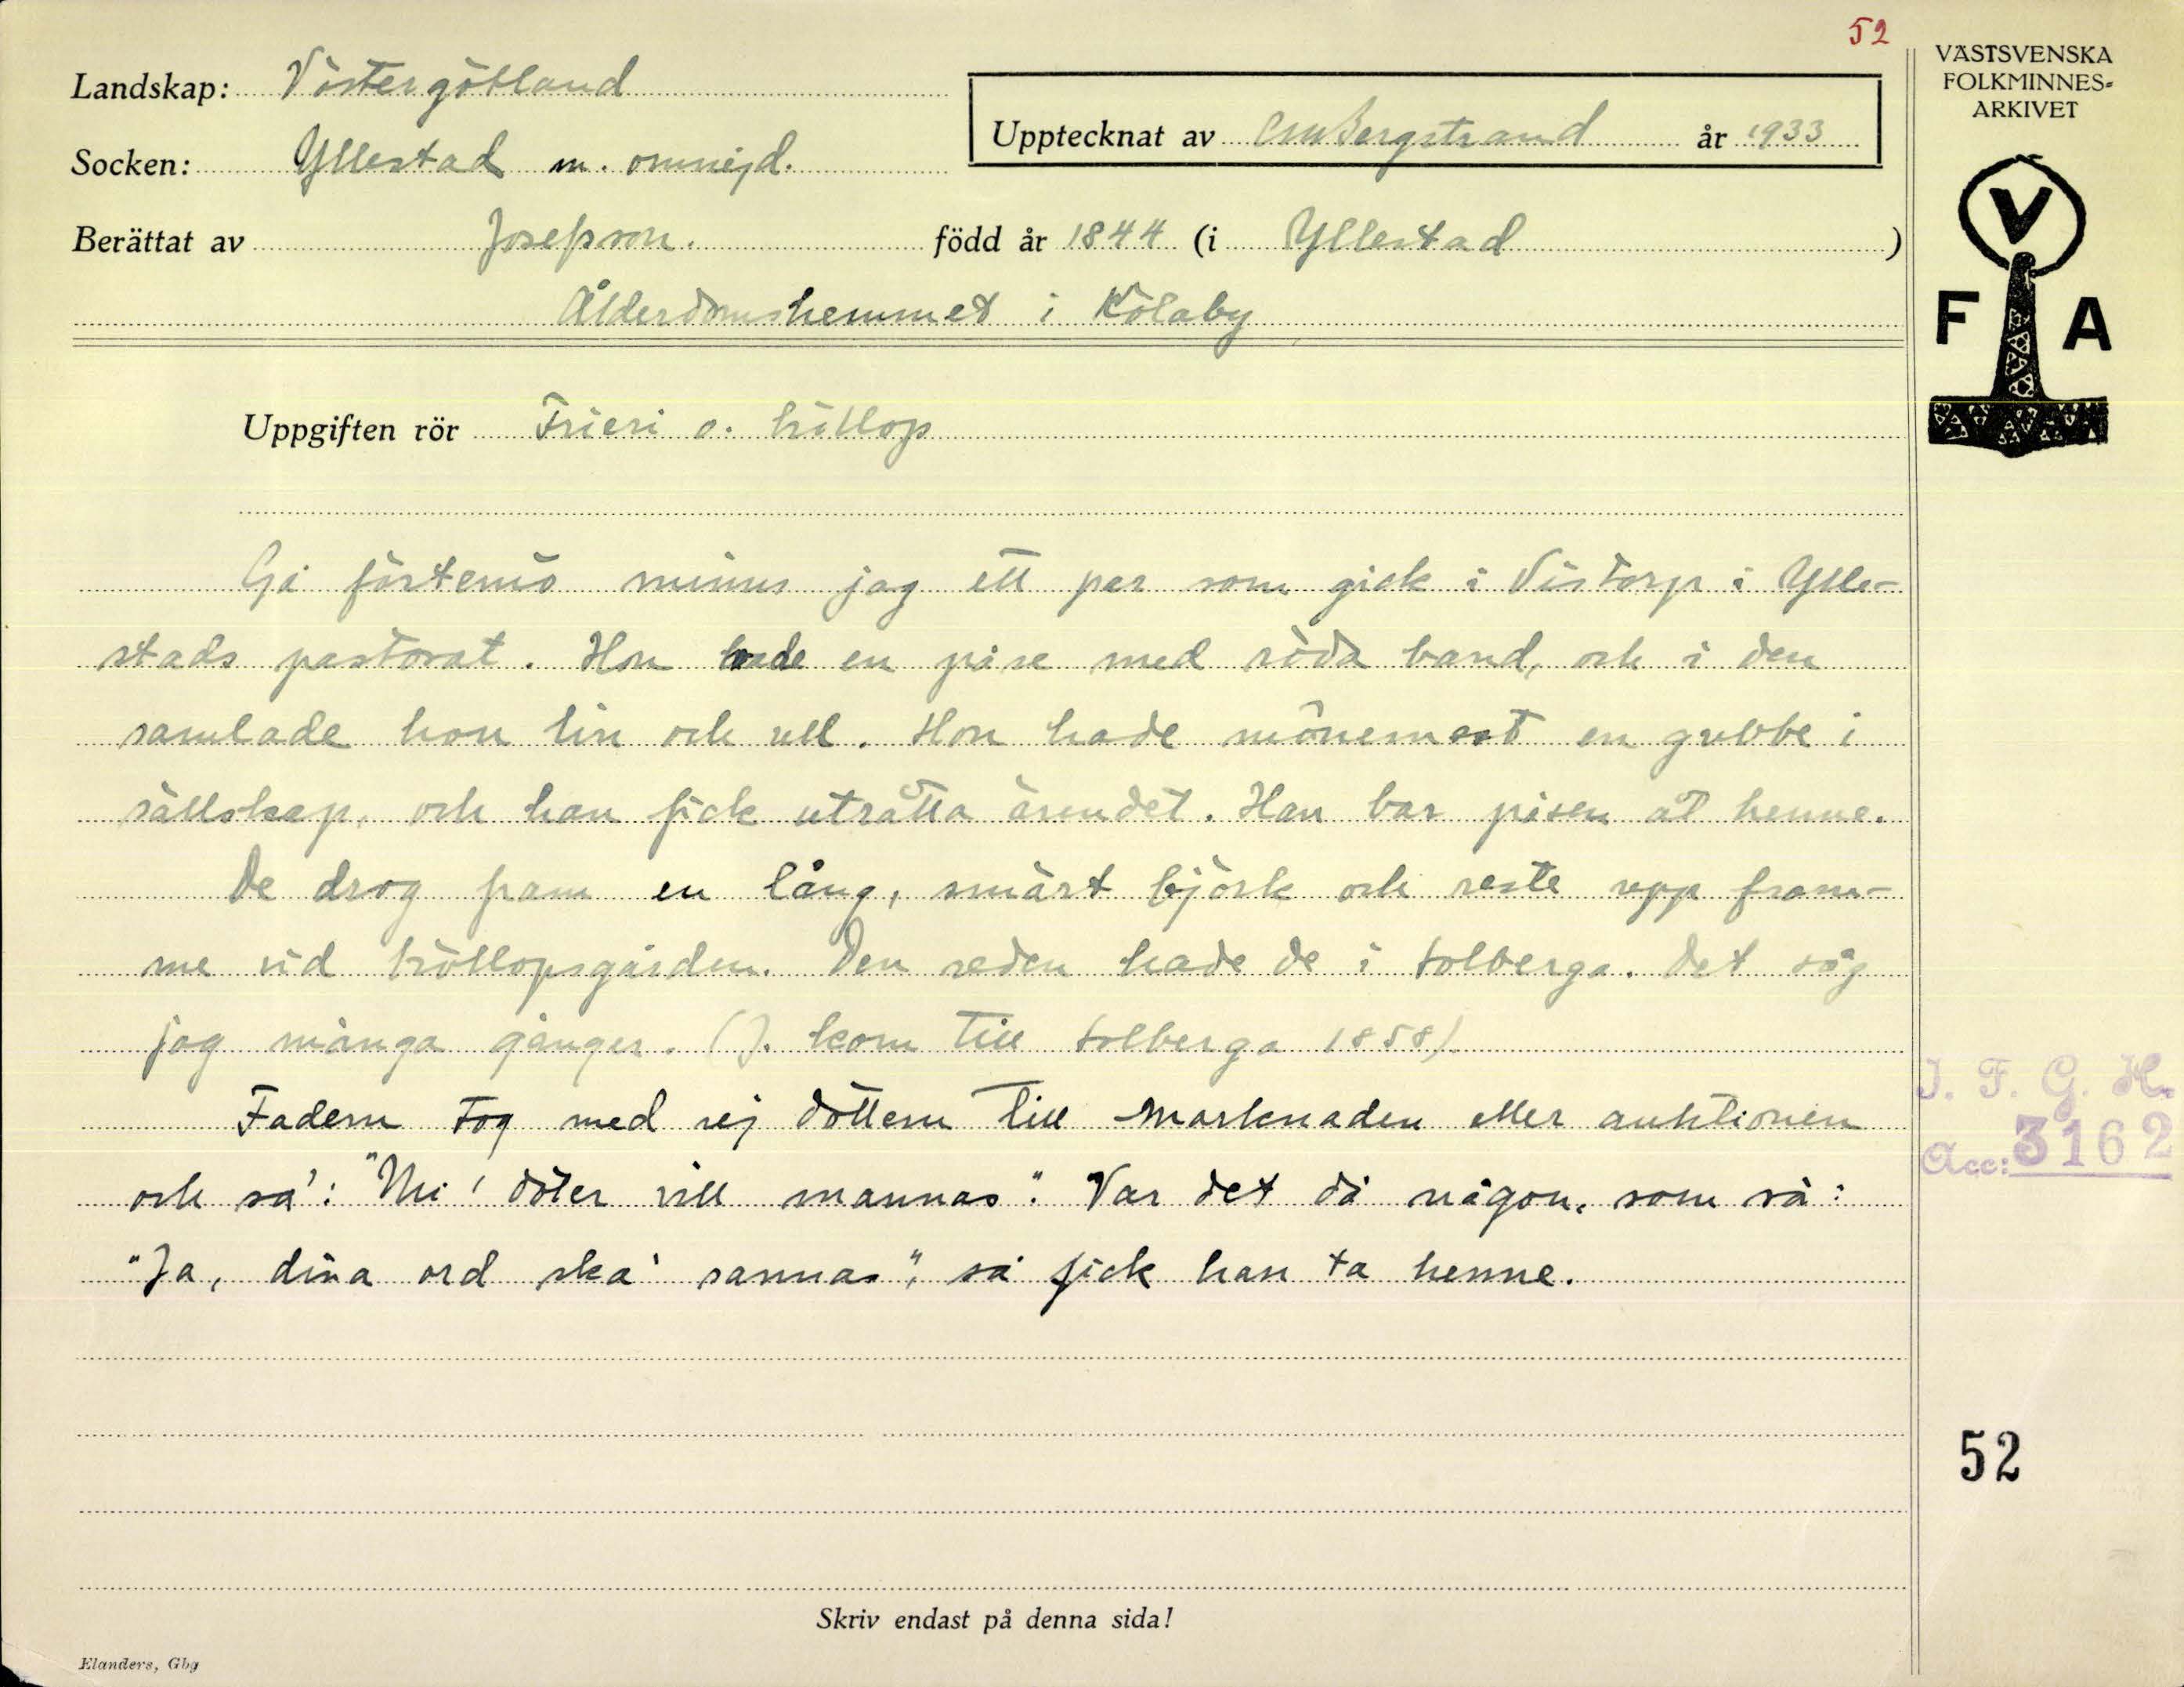 52
Landskap: Västergötland
Socken: Yllestad m. omnejd.
Upptecknat av CMBergstrand år 1933
Berättat av Josefson. född år 1844 (i Yllestad)
Ålderdomshemmet i Kölaby
Uppgiften rör Frieri o. bröllop
Gå fästemö minns jag ett par som gick i Vistorp i Ylle-
stads pastorat. Hon hade en påse med röda band, och i den
samlade hon lin och ull. Hon hade mönemest en gubbe i
sällskap, och han fick uträtta ärendet. Han bar påsen åt henne.
De drog fram en lång, smärt björk och reste upp fram-
me vid bröllopsgården. Den seden hade de i Solberga. Det såg
jag många gånger. (J. kom till Solberga 1858).
Fadern tog med sej dottern till marknaden eller auktionen
och sa': "Mi' döter vill mannas". Var det då någon, som sa:
"Ja, dina ord ska' sannas", så fick han ta henne.
Skriv endast på denna sida!
Elanders, Gbg
VÄSTSVENSKA
FOLKMINNES-
ARKIVET
V
F A
I. F. G. H.
Acc: 3162
52